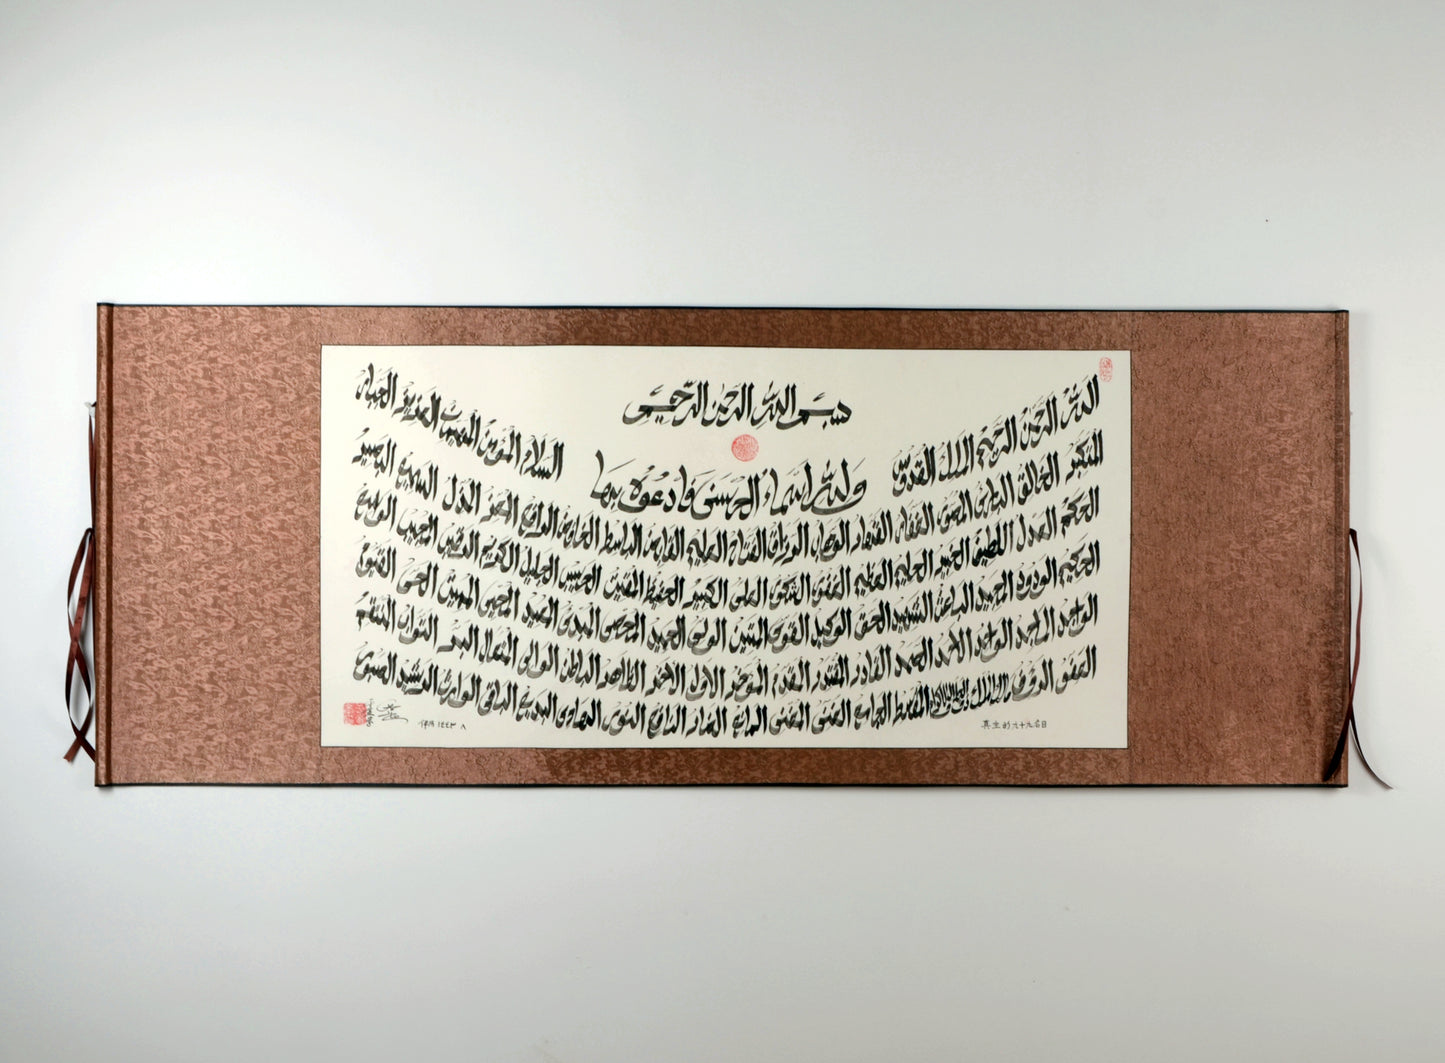 بسم الله الرحمن الرحيم
ولله اسماء الحسنى فادعوه بها
الله الرحمن الرحيم الملك القدوس السلام المؤمن المهيمن العزيز الجبار
المتكبر الخالق البارئ المصور الغفار القهار الوهاب الرزاق الفتاح العليم القابض الباسط الخافض الرافع المعز المذل السميع البصير
الحكم العدل اللطيف الخبير الحليم العظيم الغفور الشكور العلى الكبير الحفيظ المقيت الحسيب الجليل الكريم الرقيب المجيب الواسع
الحكيم الودود المجيد الباعث الشهيد الحق الوكيل القوى المتين الولى الحميد المحصى المبدئ المعيد المحيى المميت الحى القيوم
الواجد الماجد الواحد الاحد الصمد القادر المقتدر المقدم المؤخر الاول الاخر الظاهر الباطن الوالى المتعال البر التواب المنتقم
العفو الرؤف مالك الملك ذو الجلال والاكرام المقسط الجامع الغنى المغنى المانع الضار النافع النور الهادى البديع الباقى الوارث الرشيد الصبور
真主的九十九名曰